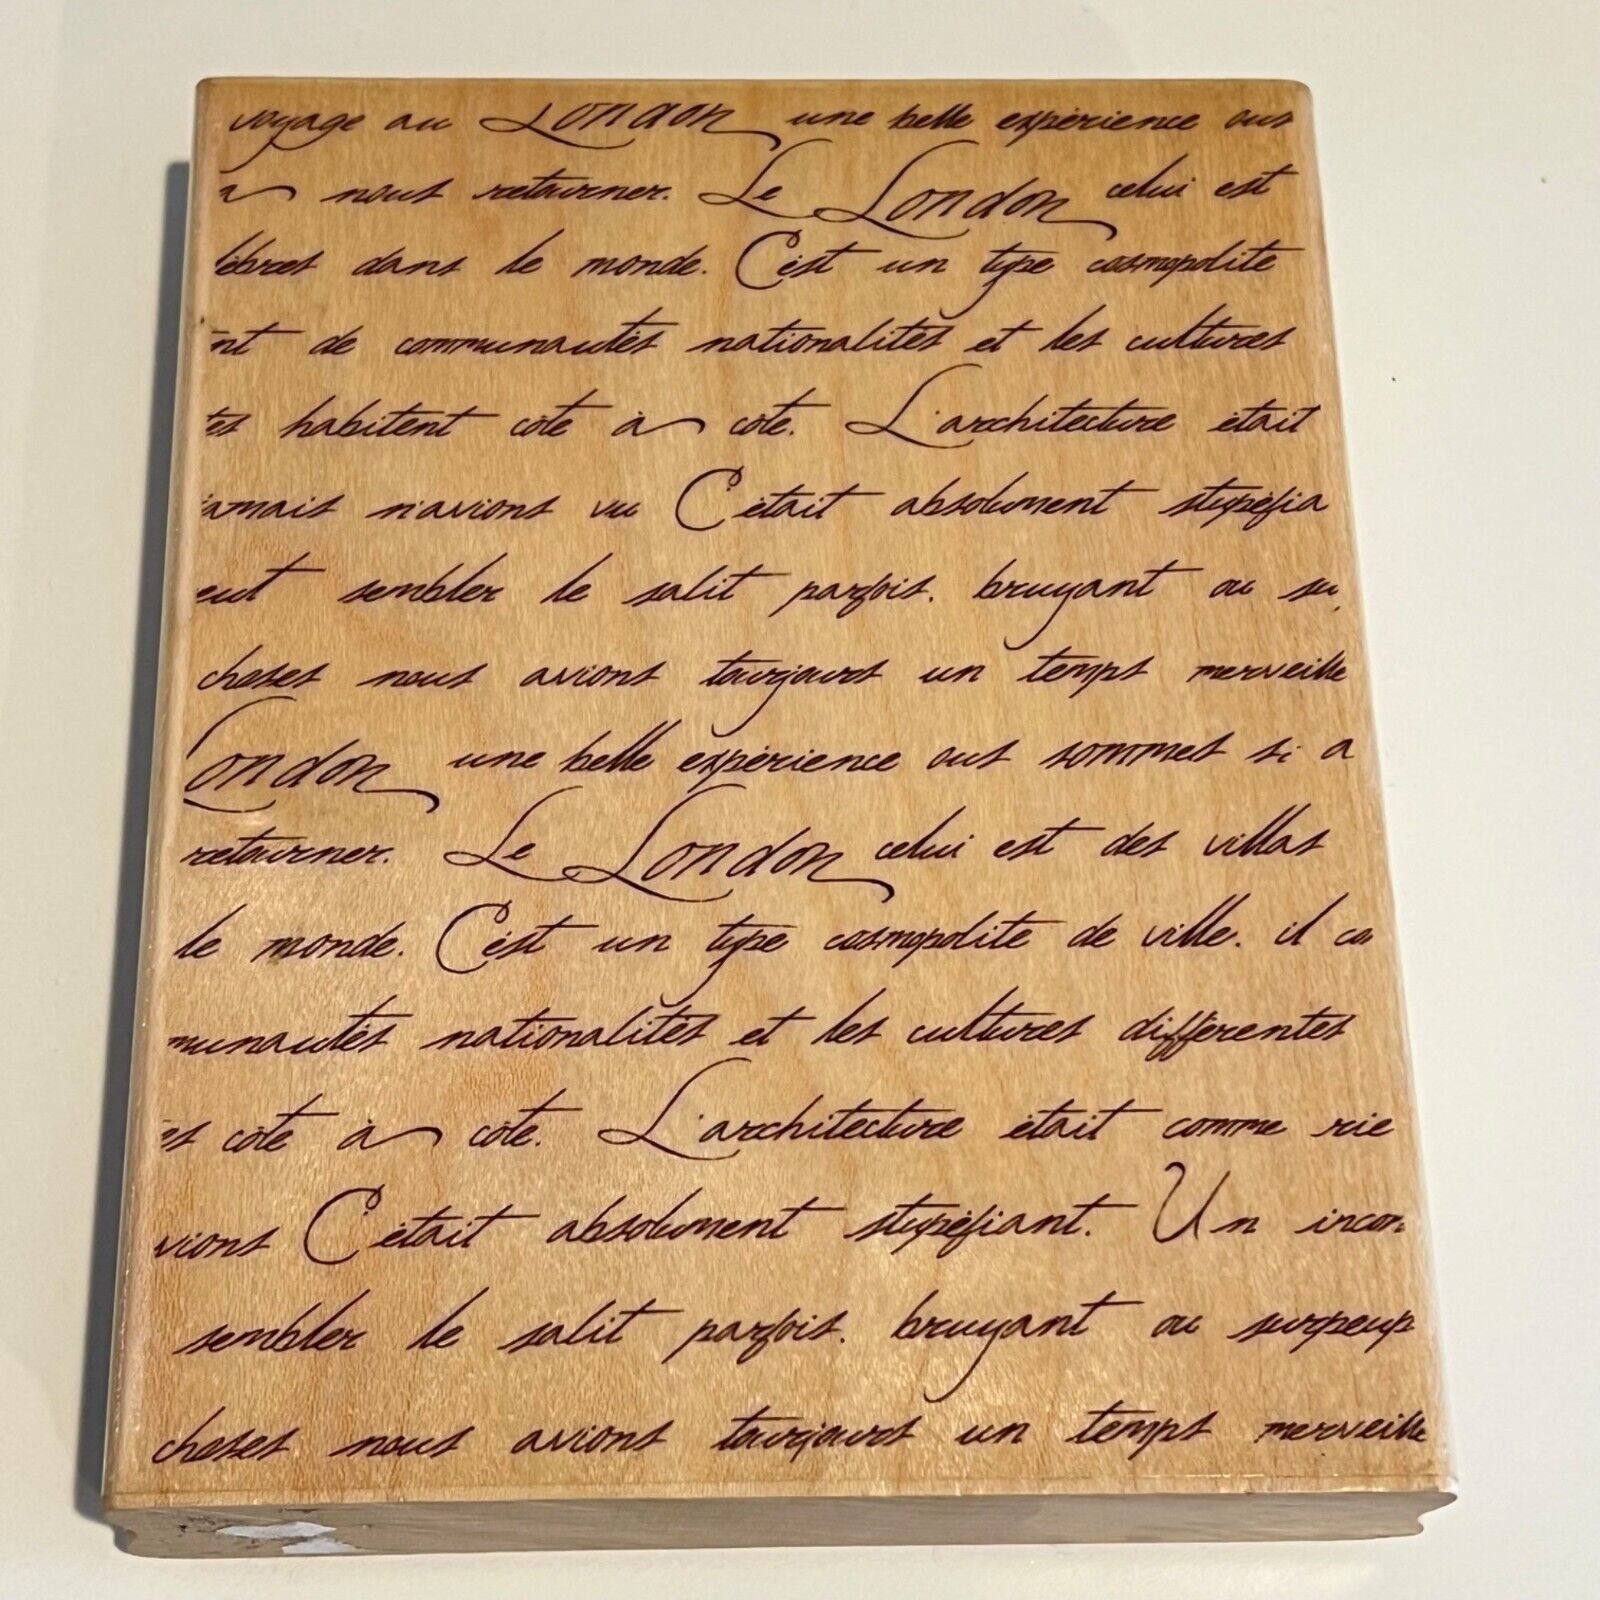 voyage au London une belle expérience ous
à nous retourner. Le London celui est
lèbres dans le monde. C'est un type cosmopolite
nt de communautés nationalités et les cultures
tes habitent côte à côte. L'architecture était
jamais n'avions vu C'était absolument stupéfia
eut sembler le salit parfois. bruyant ou su
choses nous avions tourjours un temps merveille
London une belle expérience ous sommes si a
retourner. Le London celui est des villas
le monde. C'est un type cosmopolite de ville. il co
munautés nationalités et les cultures différentes
es côte à côte. L'architecture était comme rie
vions C'était absolument stupéfiant. Un incon
sembler le salit parfois. bruyant ou surpeup
choses nous avions tourjours un temps merveille